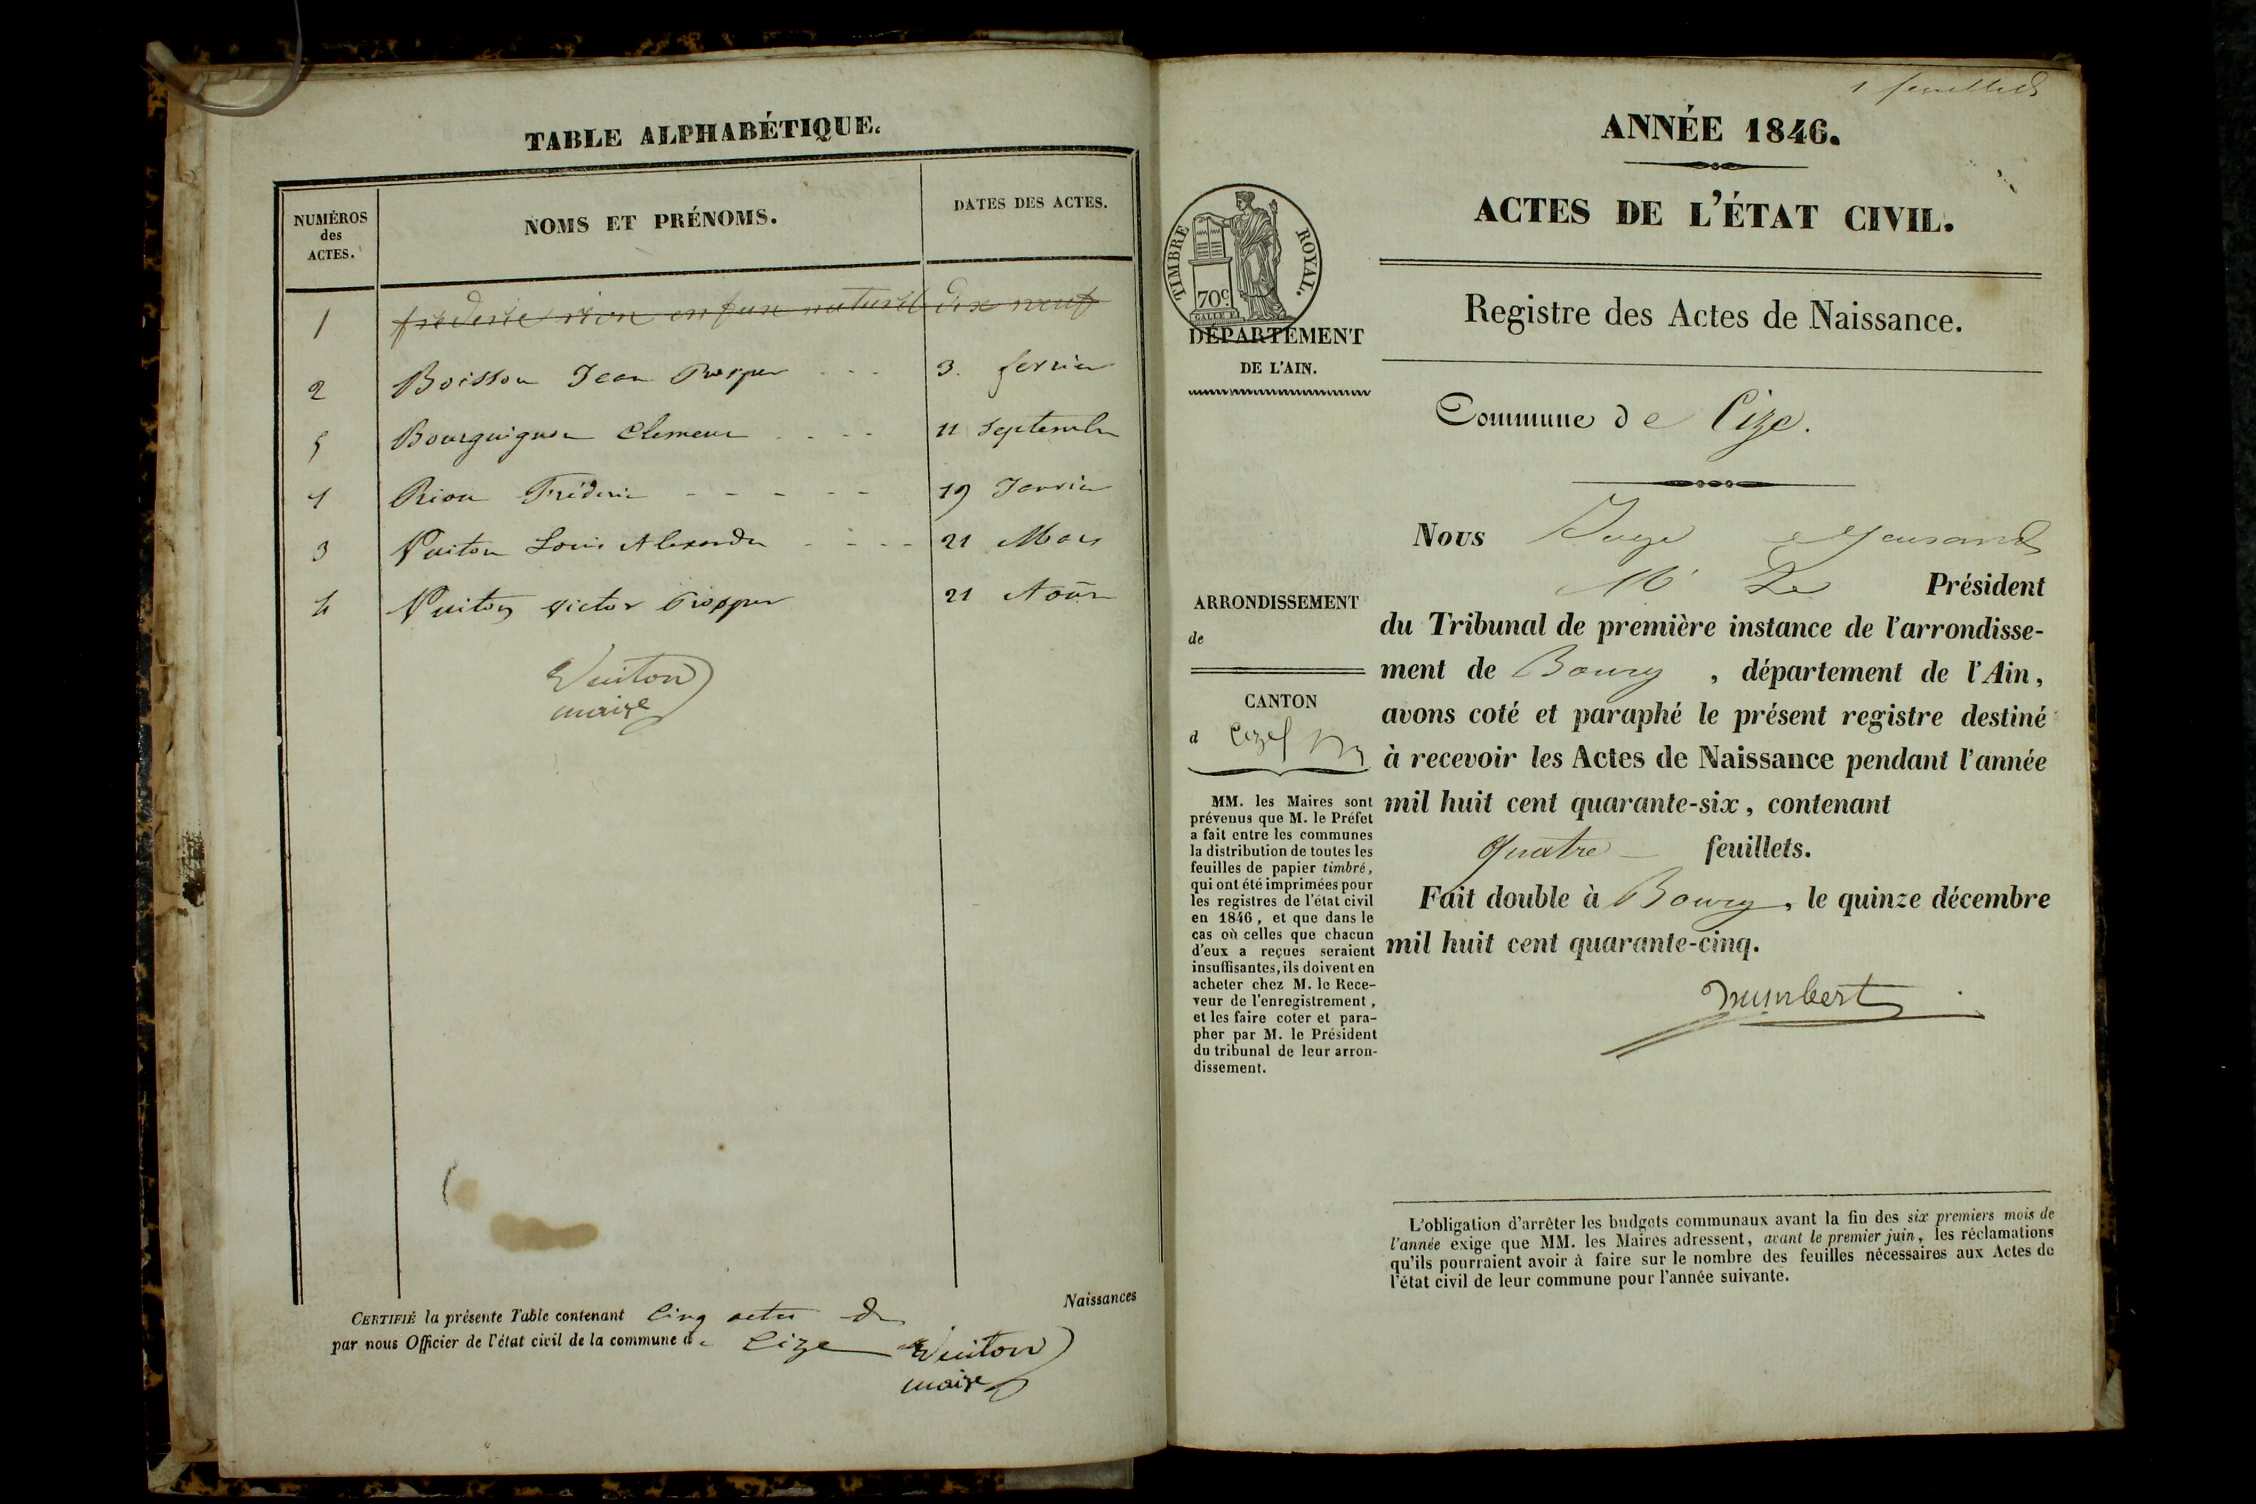 TABLE ALPHABÉTIQUE.
NUMÉROS
des
ACTES.
NOMS ET PRÉNOMS.
DATES DES ACTES.
1 frederic rion enfan naturel dix neuf
2 Boisson Jean Prosper 3. fevrier
5 Bourguignon Clement 11 Septembre
1 Rion Fréderic 19 Janvier
3 Vuiton Louis Alexandre 21 Mars
4 Vuiton Victor Prosper 21 Août
Vuiton
maire
CERTIFIÉ la présente Table contenant Cinq actes de Naissances
par nous Officier de l'état civil de la commune de Cize Vuiton
maire
1 feuillet
ANNÉE 1846.
ACTES DE L'ÉTAT CIVIL.
TIMBRE ROYAL.
70c
DÉPARTEMENT
DE L'AIN.
Registre des Actes de Naissance.
Commune de Cize.
ARRONDISSEMENT
de
CANTON
d
MM. les Maires sont
prévenus que M. le Préfet
a fait entre les communes
la distribution de toutes les
feuilles de papier timbré,
qui ont été imprimées pour
les registres de l'état civil
en 1846, et que dans le
cas où celles que chacun
d'eux a reçues seraient
insuffisantes, ils doivent en
acheter chez M. le Rece-
veur de l'enregistrement,
et les faire coter et para-
pher par M. le Président
du tribunal de leur arron-
dissement.
Nous Juge
Mr Le Président
du Tribunal de première instance de l'arrondisse-
ment de Bourg, département de l'Ain,
avons coté et paraphé le présent registre destiné
à recevoir les Actes de Naissance pendant l'année
mil huit cent quarante-six, contenant
quatre feuillets.
Fait double à Bourg, le quinze décembre
mil huit cent quarante-cinq.
humbert
L'obligation d'arrêter les budgets communaux avant la fin des six premiers mois de
l'année exige que MM. les Maires adressent, avant le premier juin, les réclamations
qu'ils pourraient avoir à faire sur le nombre des feuilles nécessaires aux Actes de
l'état civil de leur commune pour l'année suivante.